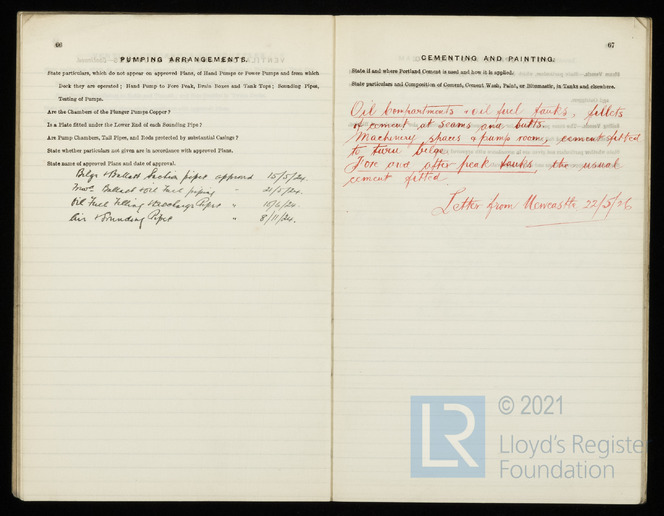 66
PUMPING ARRANGEMENTS.
State particulars, which do not appear on approved Plans, of Hand Pumps or Power Pumps and from which
Deck they are operated; Hand Pump to Fore Peak, Drain Boxes and Tank Tops; Sounding Pipes,
Testing of Pumps.
Are the Chambers of the Plunger Pumps Copper?
Is a Plate fitted under the Lower End of each Sounding Pipe?
Are Pump Chambers, Tail Pipes, and Rods protected by substantial Casings?
State whether particulars not given are in accordance with approved Plans.
State name of approved Plans and date of approval.
Bilge & Ballast Suction pipes approved 15/5/24.
Ballast & Oil Fuel piping " 21/5/24.
Oil Fuel Filling & Pipes " 10/6/24.
Air & Sounding Pipes " 8/11/24.
67
CEMENTING AND PAINTING.
State if and where Portland Cement is used and how it is applied.
State particulars and Composition of Cement, Cement Wash, Paint, or Bitumastic, in Tanks and elsewhere.
Oil Compartments & oil fuel tanks, fillets
of cement at seams and butts.
Machinery spaces & pump rooms, cement fitted
to turn bilge.
Fore and after peak tanks, the usual
cement fitted.
Letter from Newcastle 22/5/26
© 2021
LR
Lloyd's Register
Foundation